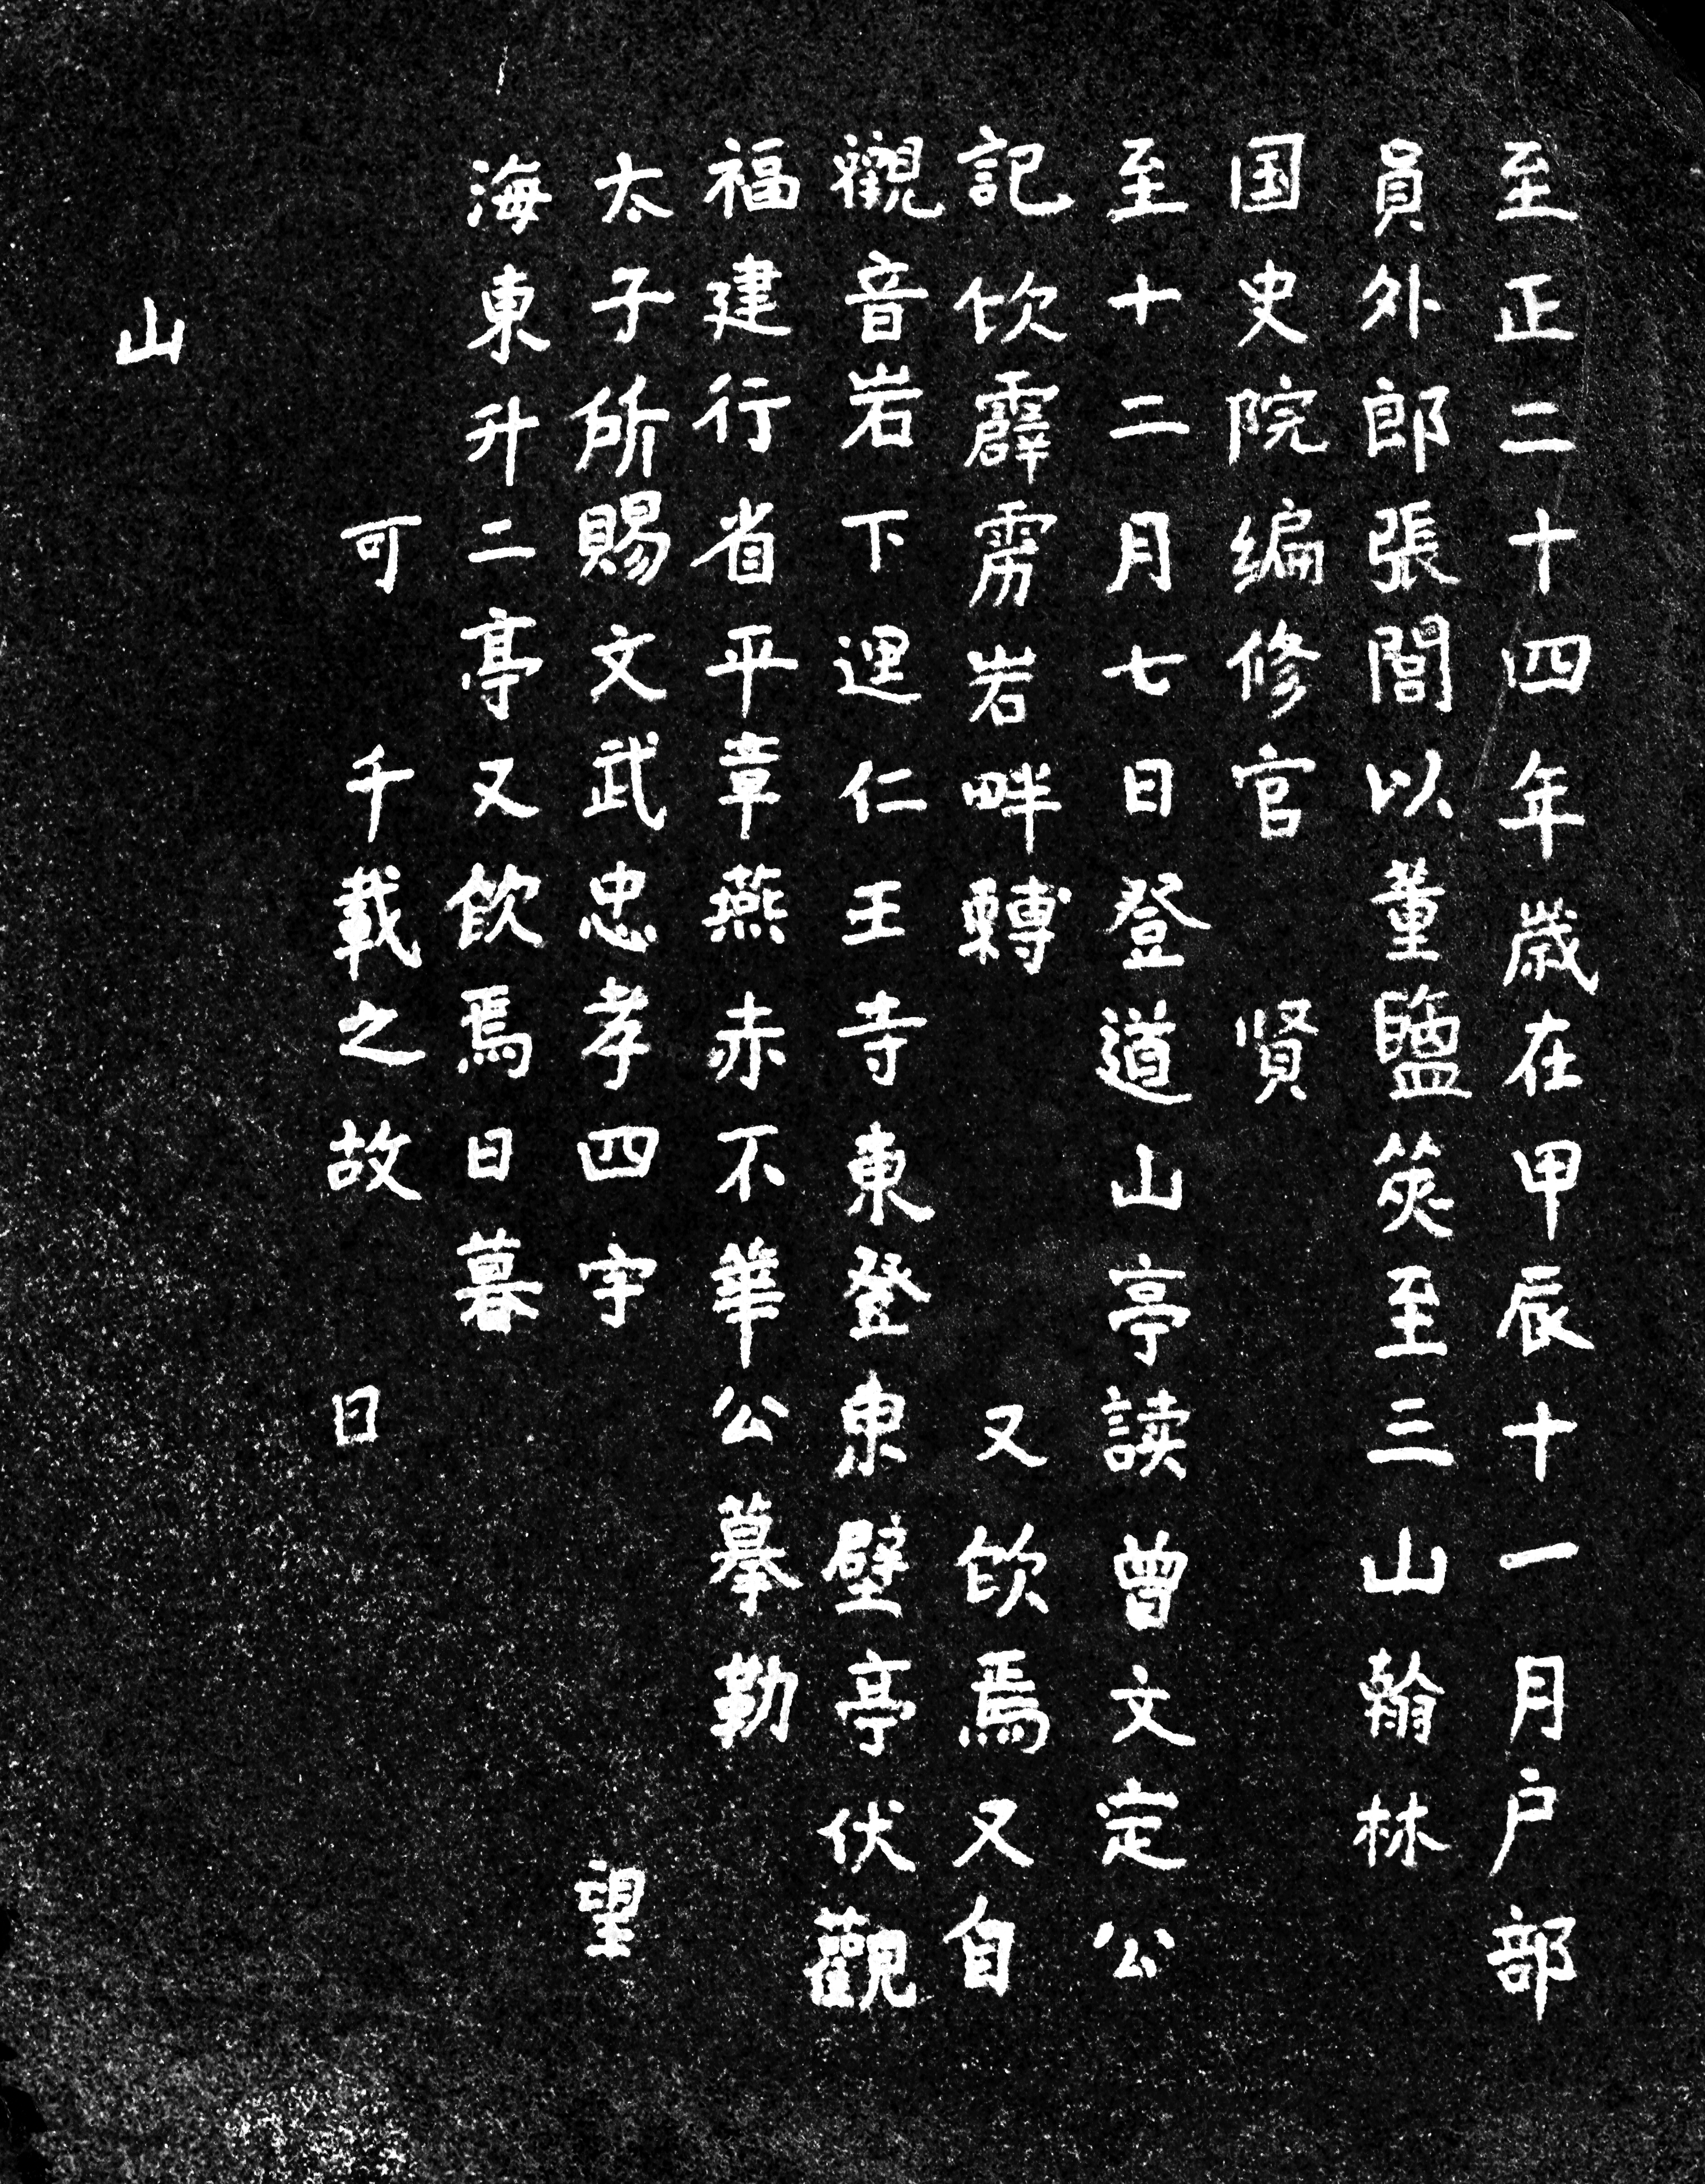 至正二十四年歲在甲辰十一月户部
員外郎張誾以董鹽筴至三山翰林
国史院编修官賢
至十二月七日登道山亭读曾文定公
記饮霹雳岩畔轉又飲焉又自
觀音岩下逕仁王寺東登東壁亭伏觀
福建行省平章燕赤不華公摹勒
太子所賜文武忠孝四字望
海東升二亭又飲焉日暮
可千載之故日
山